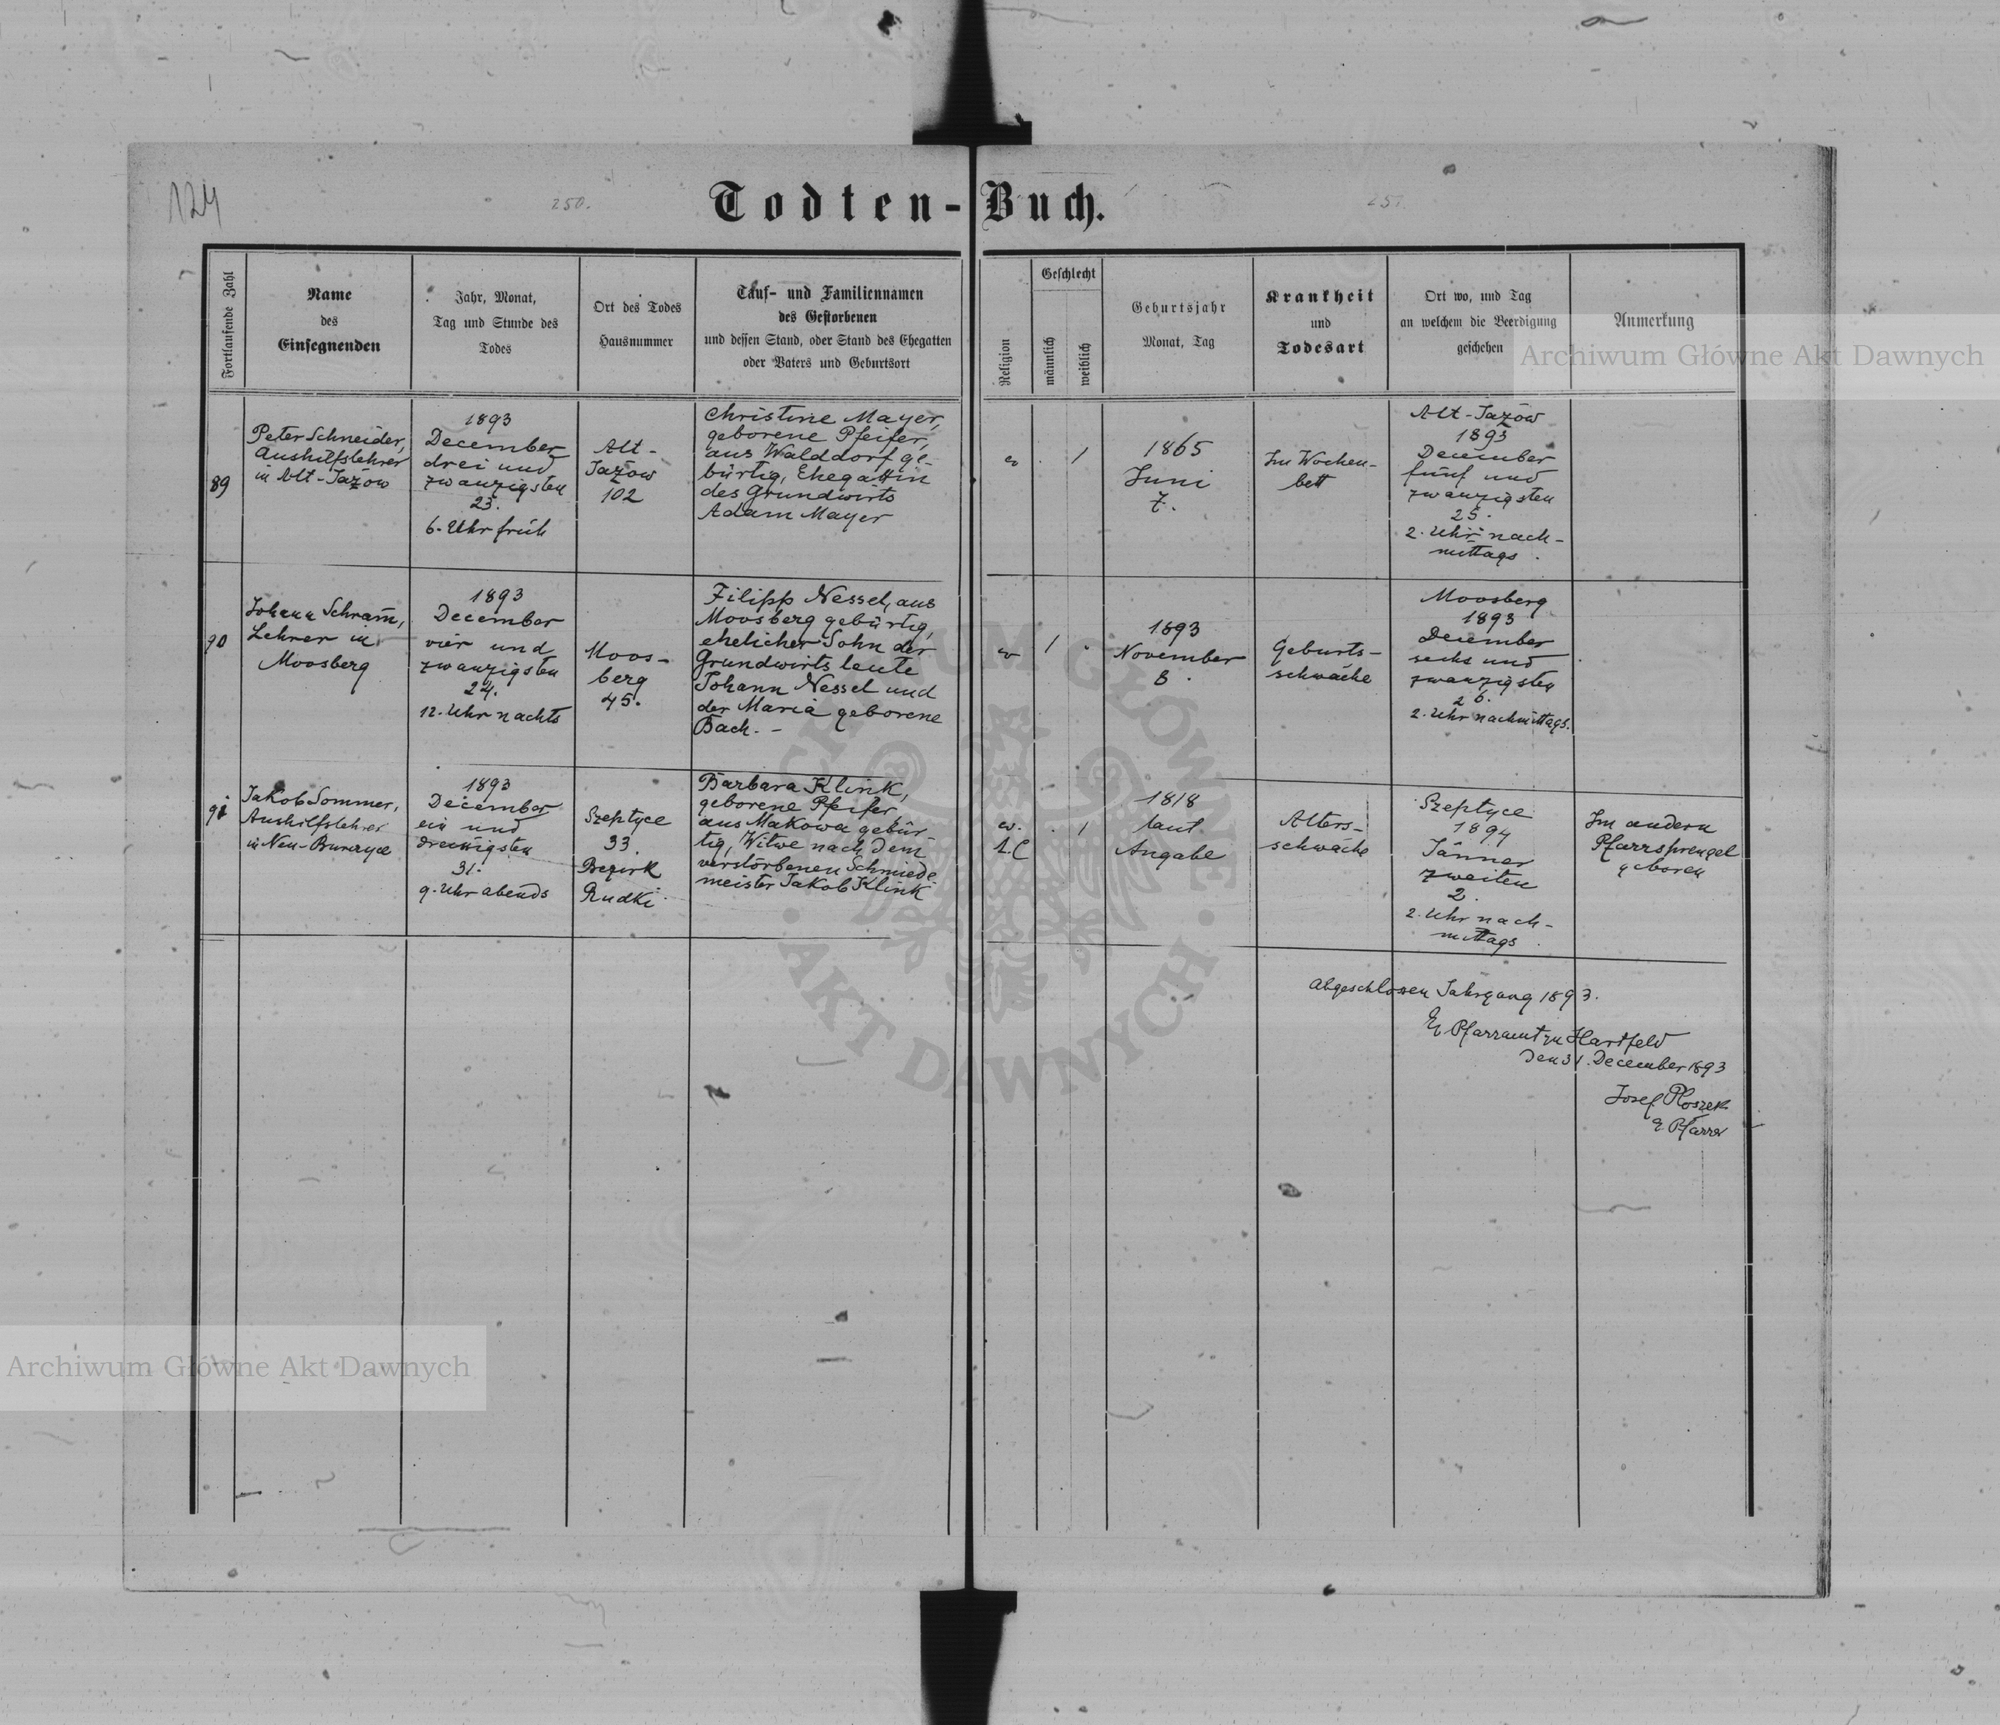 124
250.
251
Todten-Buch.
Fortlaufende Zahl
Name
des
Einsegnenden
Jahr, Monat,
Tag und Stunde des
Todes
Ort des Todes
Hausnummer
Tauf- und Familiennamen
des Gestorbenen
und dessen Stand, oder Stand des Ehegatten
oder Vaters und Geburtsort
Religion
Geschlecht
männlich
weiblich
Geburtsjahr
Monat, Tag
Krankheit
und
Todesart
Ort wo, und Tag
an welchem die Beerdigung
geschehen
Anmerkung
89
Peter Schneider,
Aushilfslehrer
in Alt-Jazow
1893
December
drei und
zwanzigsten
23.
6. Uhr früh
Alt-
Jazow
102
Christine Mayer,
geborene Pfeifer,
aus Walddorf ge-
bürtig, Ehegattin
des Grundwirts
Adam Mayer
ev
. 1
1865
Juni
7.
Im Wochen-
bett
Alt-Jazow
1893
December
fünf und
zwanzigsten
25.
2. Uhr nach-
mittags.
90
Johann Schram,
Lehrer in
Moosberg
1893
December
vier und
zwanzigsten
24.
12. Uhr nachts
Moos-
berg
45.
Filipp Nessel, aus
Moosberg gebürtig,
ehelicher Sohn der
Grundwirtsleute
Johann Nessel und
der Maria geborene
Bach. -
ev
1 .
1893
November
8.
Geburts-
schwäche
Moosberg
1893
December
sechs und
zwanzigsten
26.
2. Uhr nachmittags.
91
Jakob Sommer,
Aushilfslehrer
in Neu-Burczyce
1893
December
ein und
dreissigsten
31.
9. Uhr abends
Szeptyce
33.
Bezirk
Rudki
Barbara Klink,
geborene Pfeifer
aus Makowa gebür-
tig, Witwe nach dem
verstorbenen Schmiede
meister Jakob Klink
ev.
A.C
. 1
1818
laut
Angabe
Alters-
schwäche
Szeptyce
1894
Jänner
zweiten
2.
2. Uhr nach-
mittags.
Im andern
Pfarrsprengel
geboren
Abgeschlossen Jahrgang 1893.
Ev. Pfarramt zu Hartfeld
den 31. December 1893
Josef Ploszek
ev. Pfarrer
Archiwum Główne Akt Dawnych
Archiwum Główne Akt Dawnych
ARCHIWUM GŁÓWNE · AKT DAWNYCH ·